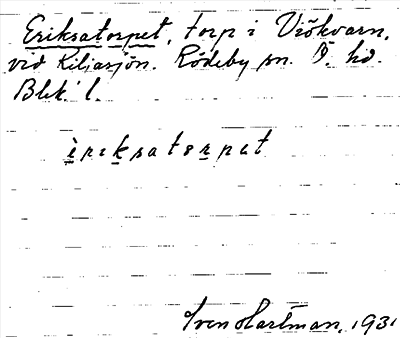 Eriksatorpet, torp i Viökvarn,
vid Kiliasjön. Rödeby sn. Ö. hd.
Blek. l.
i̇riksatorpat
Sven Hartman, 1931